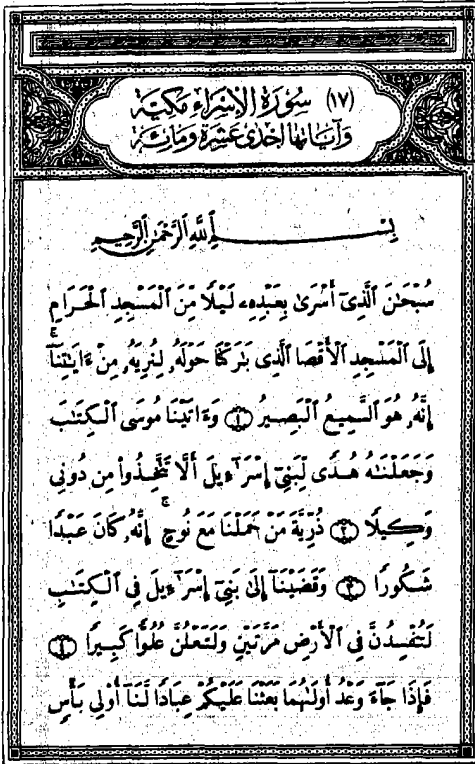 (١٧) سُورَةُ الإِسْرَاءِ مَكِيَّة
وَآيَاتُهَا إِحْدَى عَشْرَةَ وَمِائَة
بِسْمِ ٱللَّهِ ٱلرَّحْمَٰنِ ٱلرَّحِيمِ
سُبْحَٰنَ ٱلَّذِىٓ أَسْرَىٰ بِعَبْدِهِۦ لَيْلًا مِّنَ ٱلْمَسْجِدِ ٱلْحَرَامِ
إِلَى ٱلْمَسْجِدِ ٱلْأَقْصَا ٱلَّذِى بَٰرَكْنَا حَوْلَهُۥ لِنُرِيَهُۥ مِنْ ءَايَٰتِنَآ ۚ
إِنَّهُۥ هُوَ ٱلسَّمِيعُ ٱلْبَصِيرُ ۝١ وَءَاتَيْنَا مُوسَى ٱلْكِتَٰبَ
وَجَعَلْنَٰهُ هُدًى لِّبَنِىٓ إِسْرَٰٓءِيلَ أَلَّا تَتَّخِذُوا۟ مِن دُونِى
وَكِيلًا ۝٢ ذُرِّيَّةَ مَنْ حَمَلْنَا مَعَ نُوحٍ ۚ إِنَّهُۥ كَانَ عَبْدًا
شَكُورًا ۝٣ وَقَضَيْنَآ إِلَىٰ بَنِىٓ إِسْرَٰٓءِيلَ فِى ٱلْكِتَٰبِ
لَتُفْسِدُنَّ فِى ٱلْأَرْضِ مَرَّتَيْنِ وَلَتَعْلُنَّ عُلُوًّا كَبِيرًا ۝٤
فَإِذَا جَآءَ وَعْدُ أُولَىٰهُمَا بَعَثْنَا عَلَيْكُمْ عِبَادًا لَّنَآ أُو۟لِى بَأْسٍ